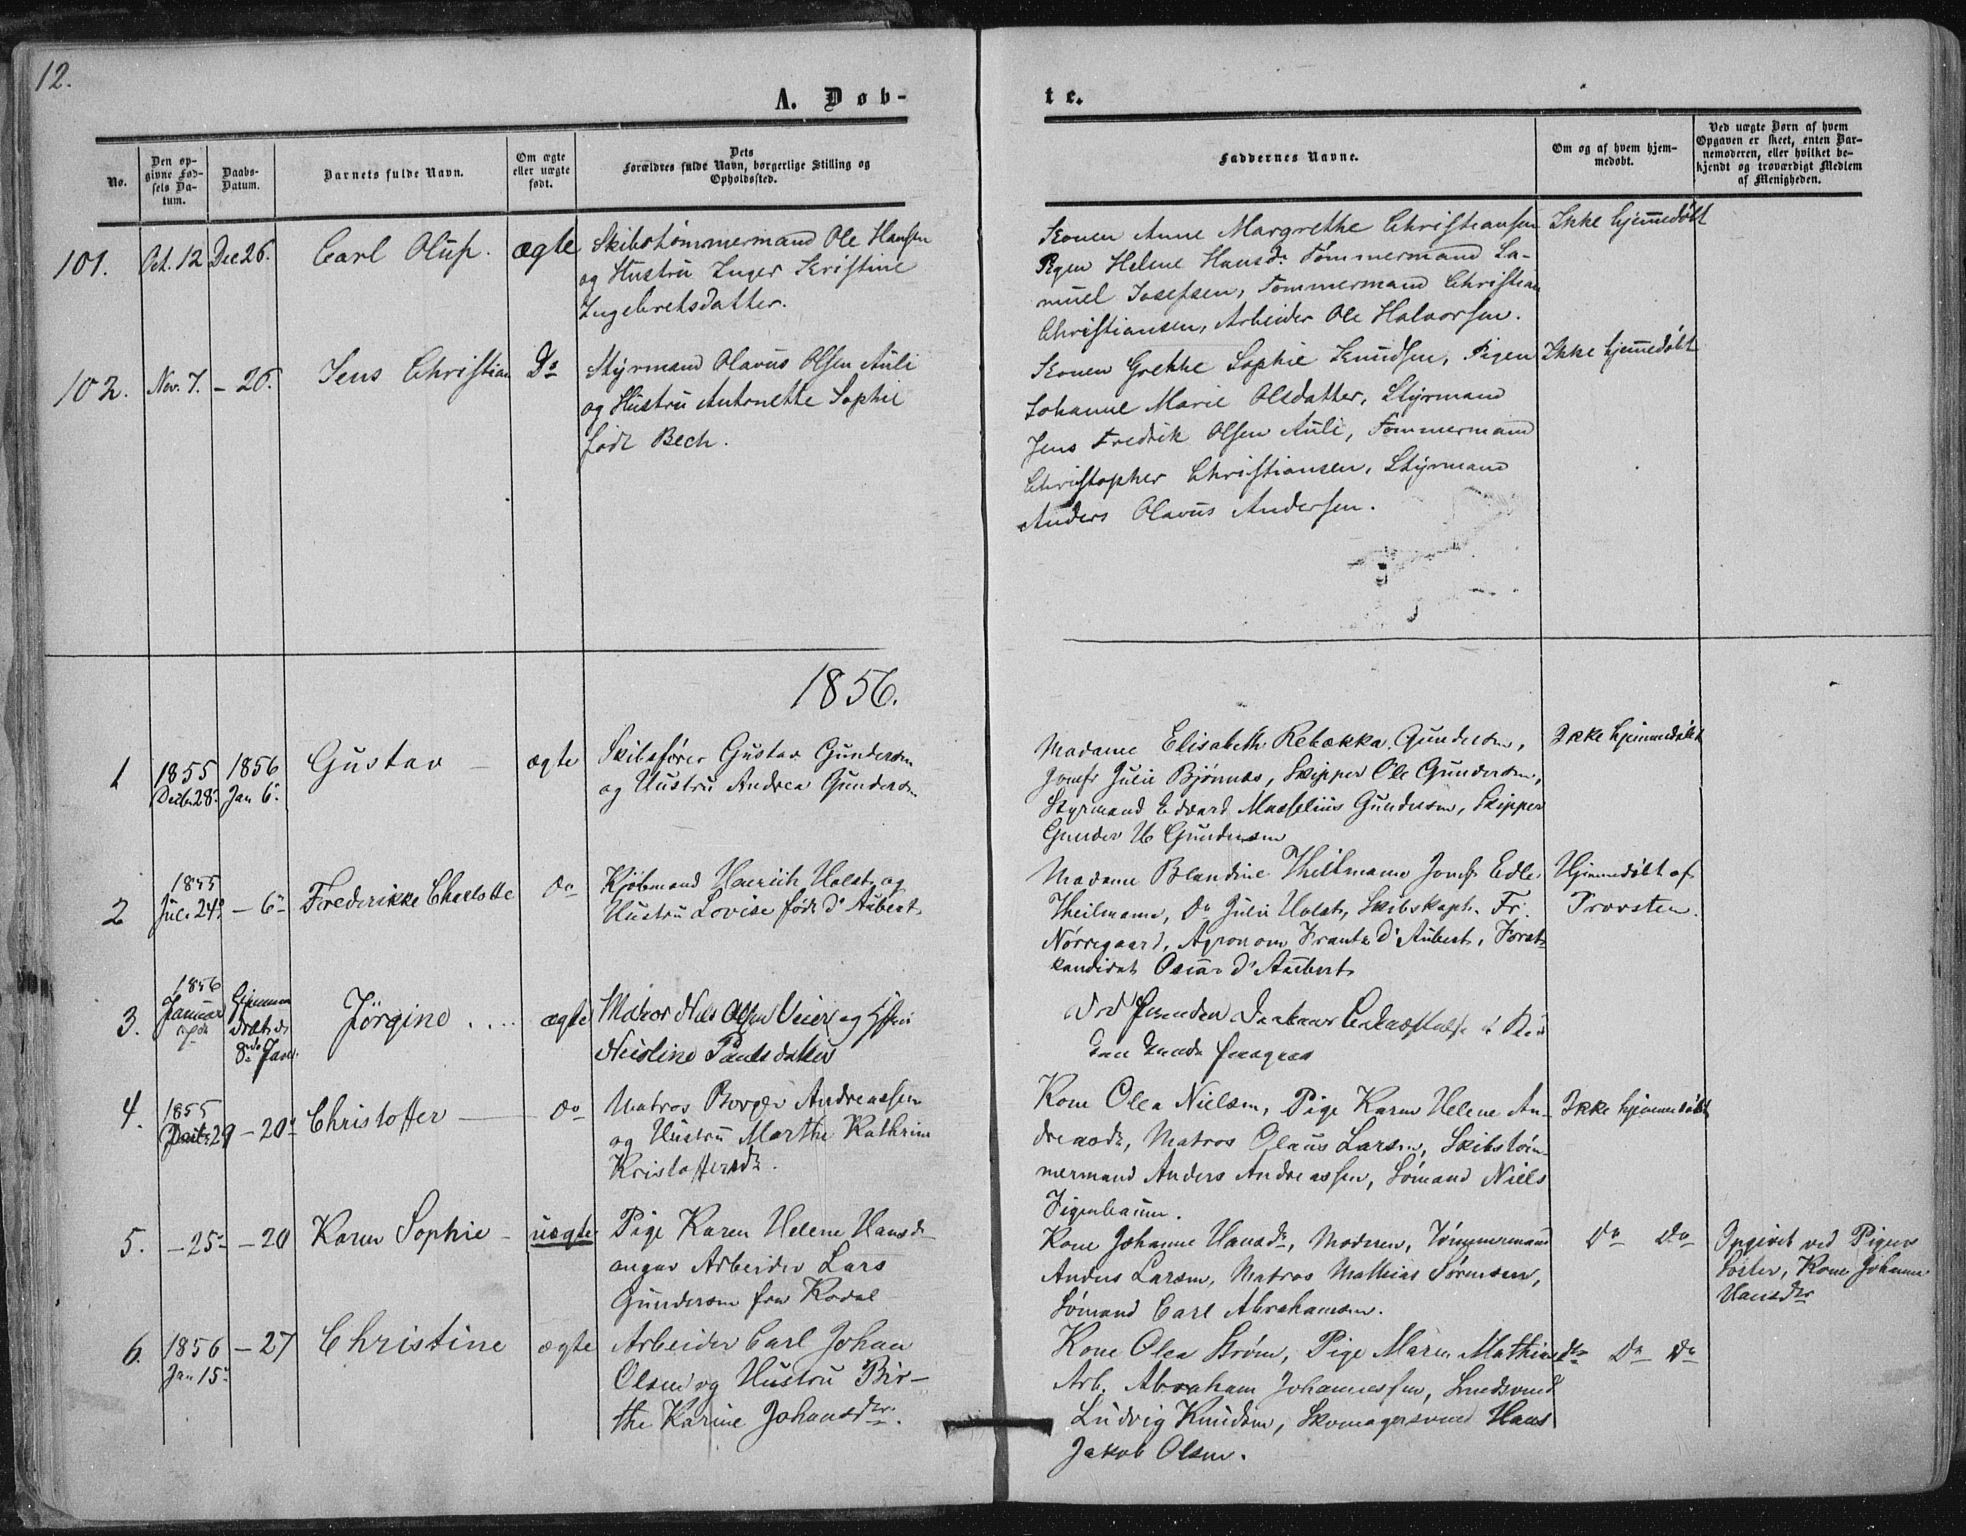 12.
A. Døb-
te.
No.
Den op-
givne Fød-
sels Da-
tum.
Daabs-
Datum.
Barnets fulde Navn.
Om ægte
eller uægte
født.
Dets
Forældres fulde Navn, borgerlige Stilling og
Opholdssted.
Faddernes Navne.
Om og af hvem hjem-
medøbt.
Ved uægte Børn af hvem
Opgaven er skeet, enten Bar-
nemoderen, eller hvilket be-
kjendt og troværdigt Medlem
af Menigheden.
101.
Oct. 12
Dec 26.
Carl Oluf.
ægte
Skibstømmermand Ole Hansen
og Hustru Inger Kristine
Ingebretsdatter.
Konen Anne Margrethe Christiansen
Pigen Helene Hansd. Tømmermand Sa-
muel Josefsen, Tømmermand Christian
Christiansen, Arbeider Ole Halvorsen.
Ikke hjemmedøbt
102.
Nov. 7.
- 26.
Jens Christian
Do
Styrmand Olavus Olsen Auli
og Hustru Antonette Sophie
født Bech.
Konen Grethe Sophie Knudsen, Pigen
Johanne Marie Olsdatter, Styrmand
Jens Fredrik Olsen Auli, Tømmermand
Christopher Christiansen, Styrmand
Anders Olavus Andersen.
Ikke hjemmedøbt
1856.
1
1855
Decbr 28.
1856
Jan 6.
Gustav —
ægte
Skibsfører Gustav Gundersen
og Hustru Andrea Gundersen
Madame Elisabeth Rebækka Gundersen,
Jomfr Julie Bjønnes, Skipper Ole Gundersen,
Styrmand Edvard Masselius Gundersen, Skipper
Gunder H Gundersen
Ikke hjemmedøbt
2
1855
Juli 24
- 6
Frederikke Charlotte
do
Kjøbmand Henrich Holst og
Hustru Lovise født d'Aubert
Madame Blandine Theilmann Jomfr Edle
Theilmann, Do Julie Holst, Skibskapt. Fr.
Nørregaard, Agronom Frantz d'Aubert, Forst
kandidat Oscar d'Aubert
Hjemmedøbt af
Provsten.
3.
1856
Januar
Hjemme
8de Jan.
Jørgine ....
ægte
Matros Nils Olsen Veier og Hstru
Nicoline Paulsdatter
4.
1855
Decbr 29
- 20
Christoffer —
do
Matros Borger Andreassen
og Hustru Marthe Kathrine
Kristoffersdr.
Kone Olea Nielsen, Pige Karen Helene An-
dreasdr, Matros Olaus Larsen, Skibstøm-
mermand Anders Andreassen, Sømand Niels
Figenbaum.
Ikke hjemmedøbt
5.
- 25
- 20
Karen Sophie -
uægte
Pige Karen Helene Hansdr
angav Arbeider Lars
Gundersen fra Kodal
Kone Johanne Hansdr, Moderen, Tømmermand
Anders Larsen, Matros Mathias Sørensen,
Sømand Carl Abrahamsen.
Do Do
Opgivet ved Pigens
Søster, Kone Johanne
Hansdtr
6.
1856
Jan 15
- 27
Christine
ægte
Arbeider Carl Johan
Olsen og Hustru Bir-
the Karine Johansdtr.
Kone Olea Strøm, Pige Maren Mathiasdtr
Arb. Abraham Johannessen, Smedsvend
Ludvig Knudsen, Skomagersvend Hans
Jakob Olsen.
Do Do